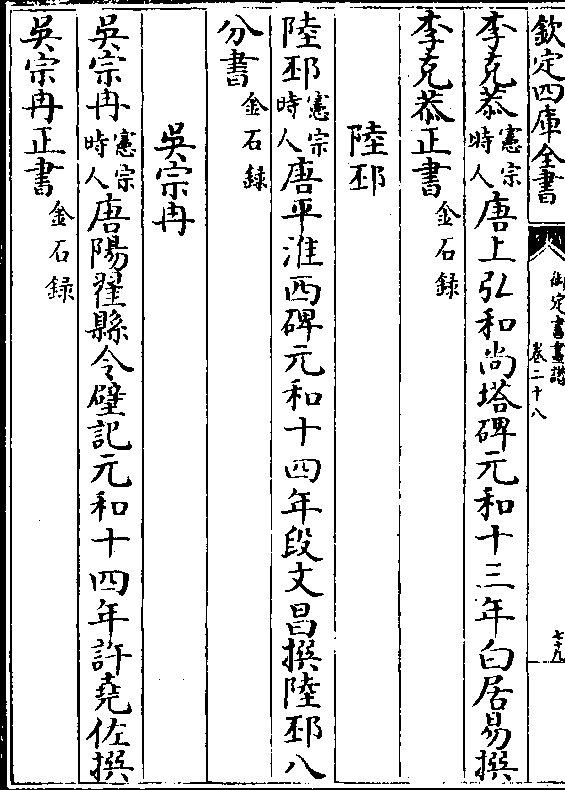 欽定四庫全書
御定書畫譜
卷二十八
七十九
李克恭憲宗時人唐上弘和尚塔碑元和十三年白居易撰
李克恭正書金石録
陸邳
陸邳憲宗時人唐平淮西碑元和十四年段文昌撰陸邳八
分書金石録
吳宗冉
吳宗冉憲宗時人唐陽翟縣令壁記元和十四年許堯佐撰
吳宗冉正書金石録